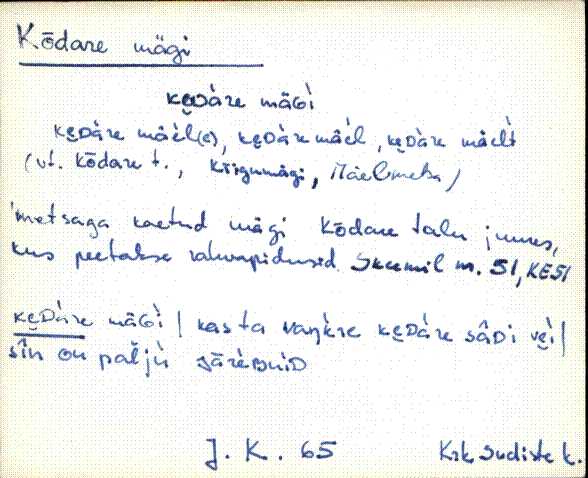 Kōdare mägi
kęDàre mäGì
kęDàre mäèl(e), kęDàre mäèl, kęDàre mäelt
(vt. Kōdare t., Kiigumägi, Mäelmetsa)
'metsaga kaetud mägi Kōdare talu juures,
kus peetakse rahvapidusid. Skeemil m. 51, KE51
kęDàre mäGì / kas ta vaņkre kęDàre sâDi vęi /
sîn on paljù jārèBuiD
J. K. 65 Krk Sudiste k.